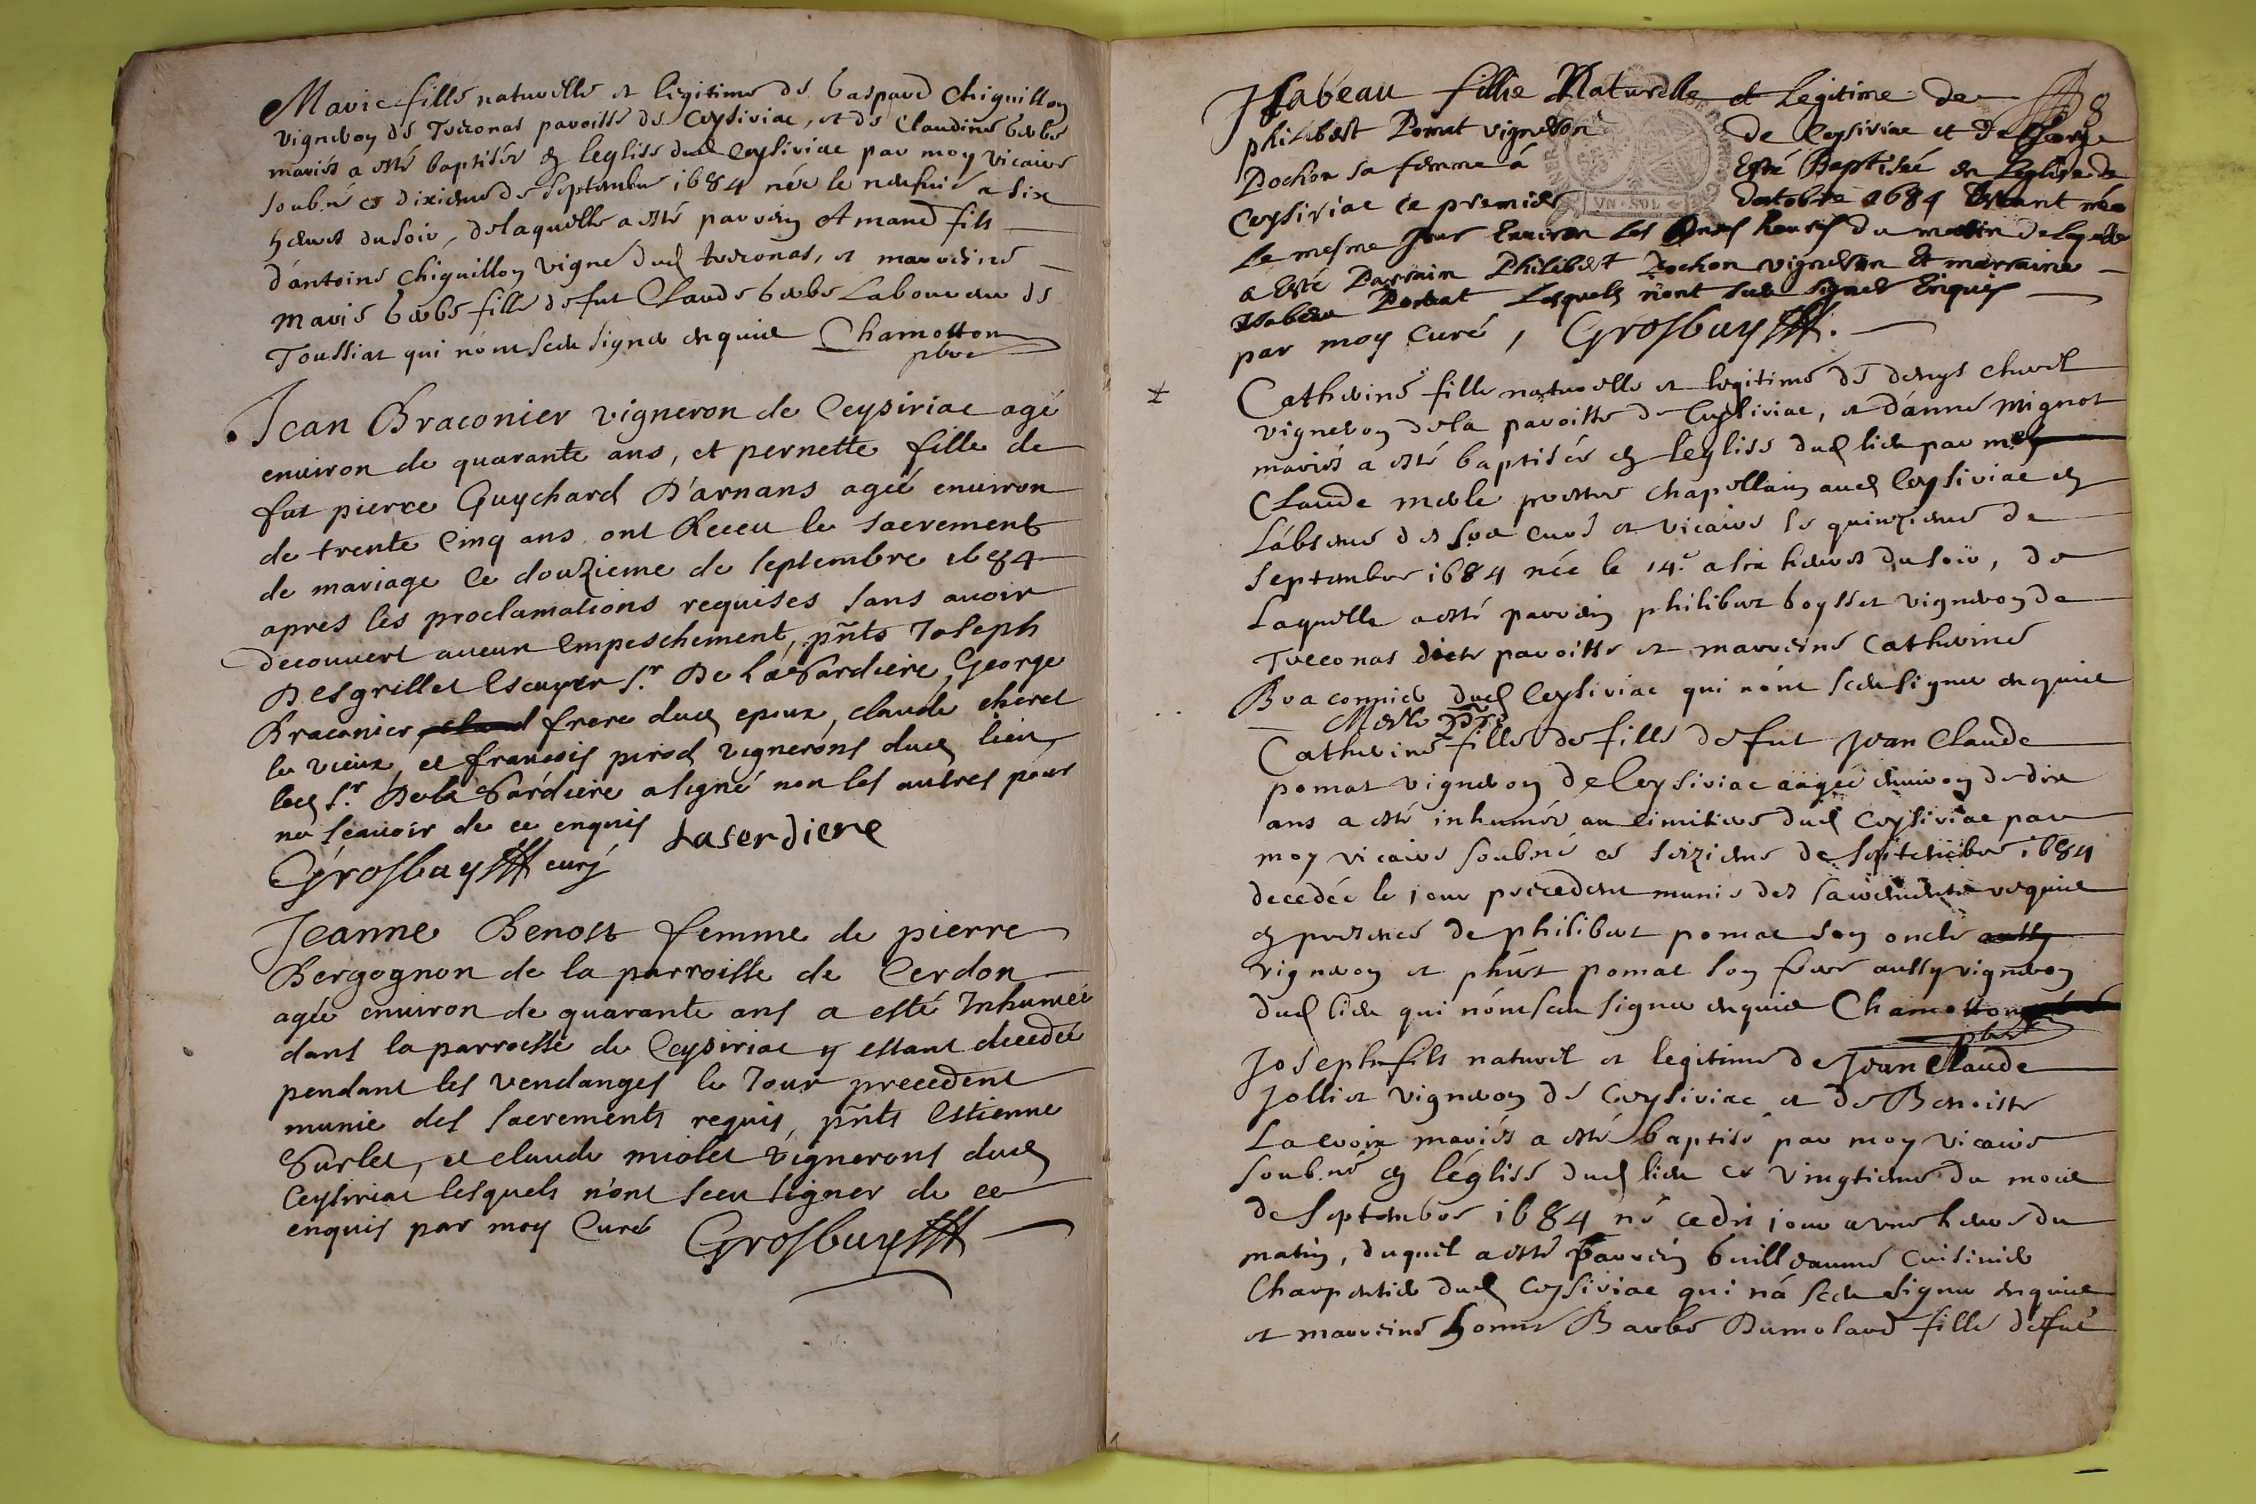 Marie fille naturelle et legitime de Gaspard Chiguillon
vigneron de Treconas paroisse de Ceysiriac, et de Claudine Gerbe
mariés a esté baptisée en leglise dud Ceysiriac par moy vicaire
soubné ce dixieme de septembre 1684 née le neufvie a six
heures du soir, de laquelle a esté parrein Amand fils
d'antoine Chiguillon vigne dud treconas, et marreine
Marie Gerbe fille de fut Claude Gerbe Laboureur de
Toussiat qui n'ont sceu signer enquis Chamotton
pbre
Jean Braconier vigneron de Ceysiriac agé
enuiron de quarante ans, et pernette fille de
fut pierre Guychard D'arnans ageé enuiron
de trente Cinq ans ont Receu le sacrement
de mariage Ce douzieme de septembre 1684
apres les proclamations requises sans auoir
decouuert aucun Empeschement, pñts Joseph
Desgrillet Escuyer Sr. De LaGardiere, George
Braconier, frere dud epoux, claude cheret
le vieux, et francois pirod vignerons dud lieu
led Sr. De la Gardiere a signé non les autres pour
ne scauoir de ce enquis Laserdiere
Grosbuy curé
Jeanne Benost femme de pierre
Bergognon de la parroisse de Cerdon
agée enuiron de quarante ans a esté Inhumée
dans la parroesse de Ceysiriac y estant decedée
pendant les vendanges le Jour precedent
munie des sacrements requis, pñts Estienne
Gurlet, et claude miolet vignerons dud
Ceysiriac lesquels n'ont sceu signer de ce
enquis par moy Curé Grosbuy
8
Isabeau fillie Naturelle et Legitime de
philibert Pomat vigneron de Ceysiriac et de
Pochon sa femme á Esté Baptisée en Leglise de
Ceysiriac ce premier doctobre 1684 Estant née
Le mesme Jour Enuiron Les Onze heures du matin de
a Esté Parrain Philibert Pochon vigneron Et marraine
Isabeau Pomat Lesquels n'ont sceu signer Enquis
par moy Curé, Grosbuy.
Catherine fille naturelle et legitime de denys cheret
vigneron de la paroisse de Ceysiriac, et d'anne Mignot
mariés a esté baptisée en leglise dud lieu par moy
Claude Merle prestre chapellain aud Ceysiriac en
L'absence des Srs curé et vicaire le quinzieme de
septembre 1684 née le 14.e a six heures du soir, de
Laquelle a esté parrein philibert boysset vigneron de
Treconas dicte paroisse et marreine Catherine
Braconnier dud Ceysiriac qui n'ont sceu signer enquis
Merle pbre
Catherine fille de fille de fut Jean Claude
pomat vigneron de Ceysiriac aagée enuiron de dix
ans a esté inhumée au cimitiere dud Ceysiriac par
moy vicaire soubné ce seizieme de septembre 1684
decedée le jour precedent munie des sacrements requis
en presence de philibert pomat son oncle aussy
vigneron et phirt pomat son frere aussy vigneron
dud lieu qui n'ont sceu signer enquis Chamotton
pbre
Joseph fils naturel et legitime de Jean Claude
Jolliet vigneron de Ceysiriac et de Benoiste
Lacroix mariés a esté baptisé par moy vicaire
soubné en l'églisé dud lieu ce vingtieme du mois
de septembre 1684 né cedit jour a une heure du
matin, duquel a esté parrein Guilleaume Cuisinier
Charpentier dud Ceysiriac qui n'a sceu signer enquis
et marreine honne Barbe Dumolard fille defut